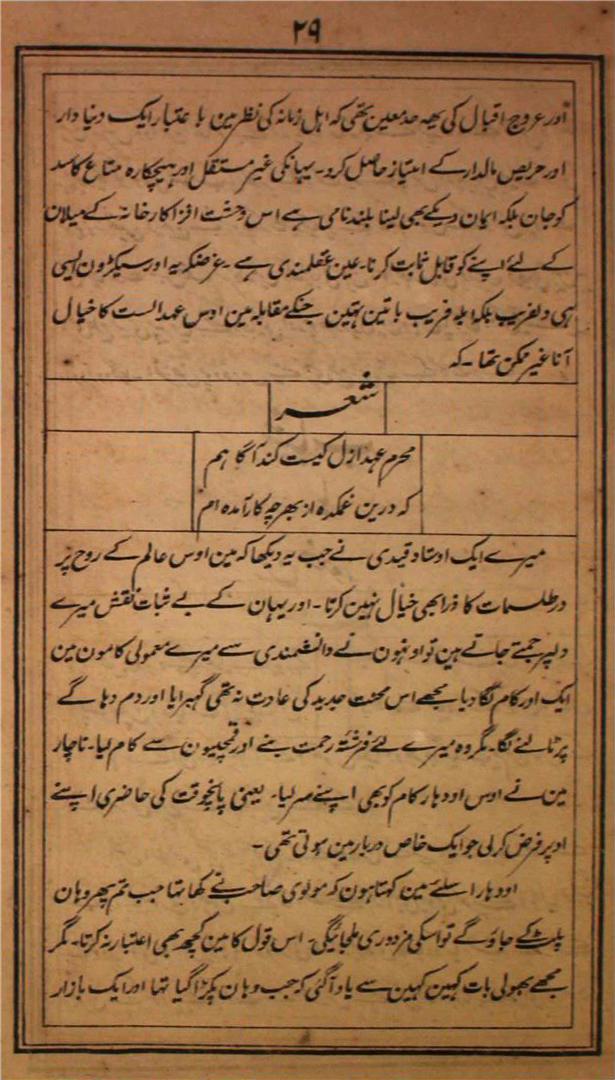 ۲۹
اور عروج اقبال کی یهہ حد معین تھی کہ اہل زمانہ کی نظر مین با عتبار ایک دنیا دار
اور حریص مالدار کے امتیاز حاصل کرو۔ یہانکی غیر مستقل اور ہیچکارہ متاع کا سد
کو جان بلکہ ایمان دیکے بھی لینا بلند نامی ہے اس وحشت افزا کارخانہ کے میلان
کے لئے اپنے کو قابل ثابت کرنا۔ عین عقلمندی ہے۔ غرضکہ یہ اور سیکڑون ایسی
ہی دلفریب بلکہ ابلہ فریب باتین تہین جنکے مقابلہ مین اوس عہد الست کا خیال
آنا غیر ممکن تھا۔ کہ
شعر
محرم عہد ازل کیست کند آگا ہم
کہ درین غمکدہ از بہر چہ کار آمدہ ام
میرے ایک اوستاد قیدی نے جب یہ دیکھا کہ مین اوس عالم کے روح پر
در طلسمات کا ذرا بھی خیال نہین کرتا۔ اور یہان کے بے ثبات نقش میرے
دلپر جمتے جاتے ہین تو اونہون نے دانشمندی سے میرے معمولی کامون مین
ایک اور کام لگا دیا مجھے اس محنت جدید کی عادت نہ تھی گہبرایا اور دم دہا گے
پر ٹالنے لگا۔ مگر وہ میرے لئے فرشتۂ رحمت بنے اور قمچیون سے کام لیا۔ ناچار
مین نے اوس اودہار کام کو بھی اپنے سر لیا۔ یعنی پانچوقت کی حاضری اپنے
اوپر فرض کر لی جو ایک خاص دربار مین ہوتی تھی۔
اودہار اسلئے مین کہتا ہون کہ مولوی صاحب نے کہا تہا جب تم پھر وہان
پلٹ کے جاؤ گے تو اسکی مزدوری ملجائیگی۔ اس قول کا مین کچھ بھی اعتبار نہ کرتا۔ مگر
مجھے بھولی بات کہین کہین سے یاد آگئی کہ جب وہان پکڑا گیا تہا اور ایک بازار